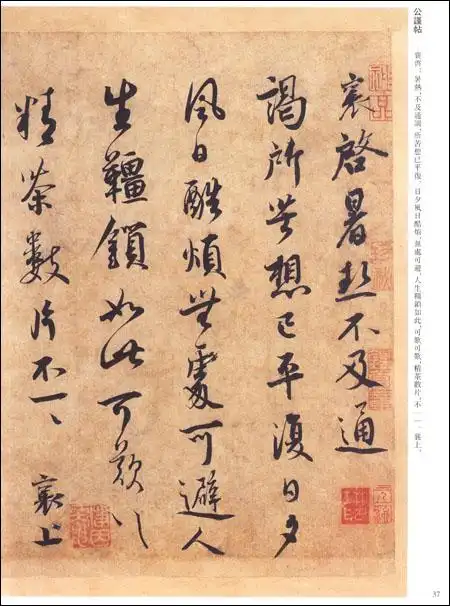 公謹帖
襄啓：暑熱，不及通謁，所苦想已平復。日夕風日酷煩，無處可避，人生韁鎖如此，可歎可歎，精茶數片，不一一。襄上。
襄啓暑熱不及通
謁所苦想已平復日夕
風日酷煩無處可避人
生韁鎖如此可歎〻
精茶數片不一〻 襄上
37